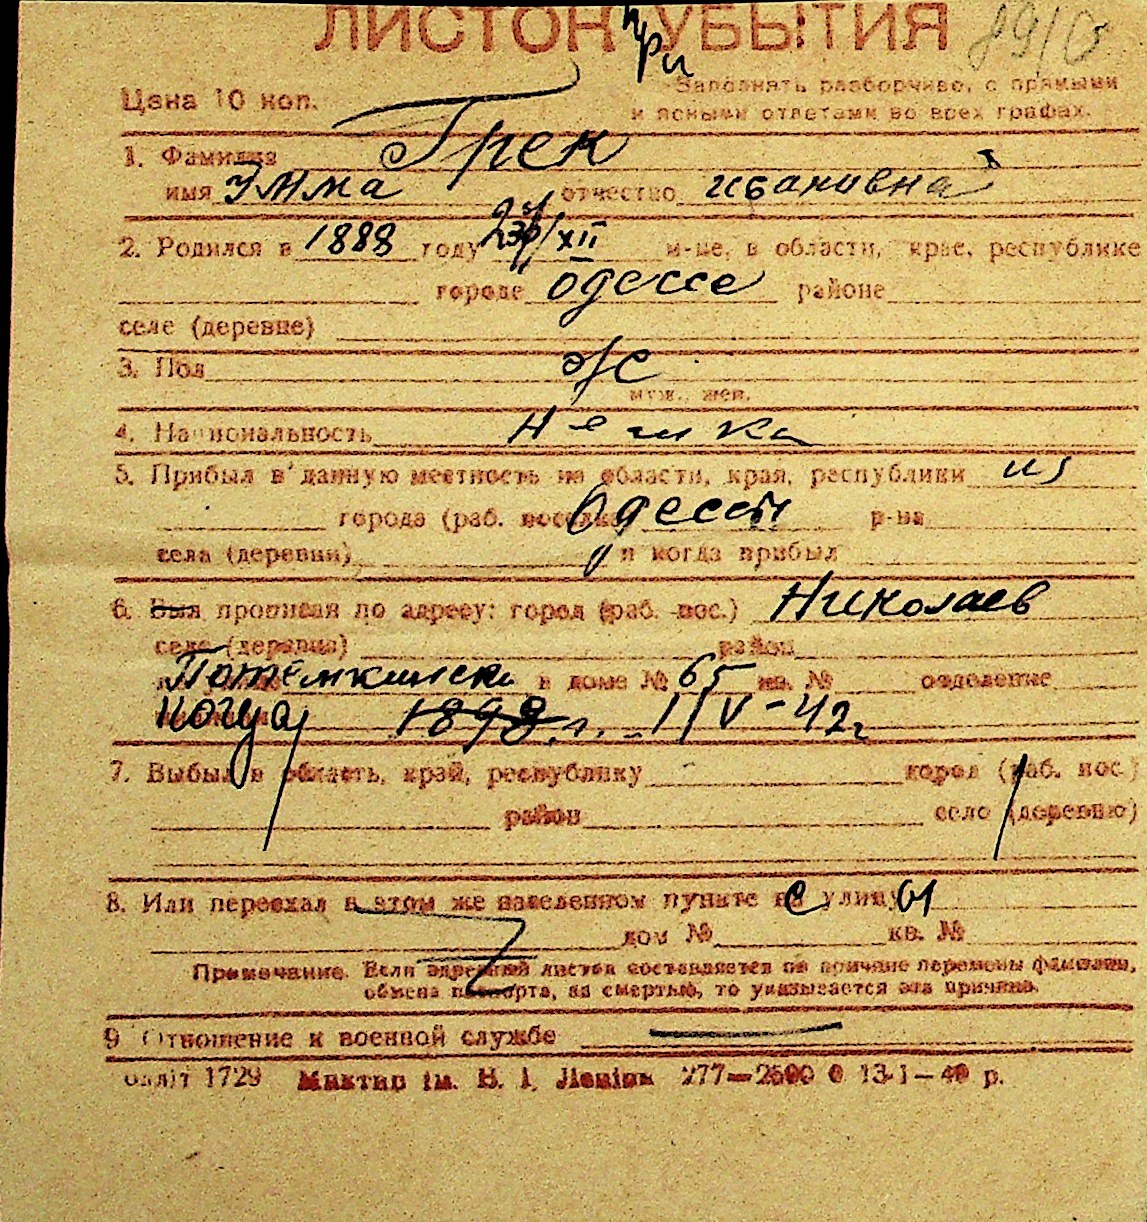 ЛИСТОК при УБЫТИЯ
Цена 10 коп.
Заполнять разборчиво, с прямыми
и ясными ответами во всех графах.
1. Фамилия Грек
имя Эмма отчество Ивановна
2. Родился в 1888 году XII м-це, в области, крае, республике
городе Одессе районе
селе (деревне)
3. Пол ж
муж., жен.
4. Национальность Немка
5. Прибыл в данную местность из области, края, республики из
города (раб. поселка) Одессы р-на
села (деревни) и когда прибыл
6. Был прописан по адресу: город (раб. пос.) Николаев
село (деревня) район
Потемкинск в доме № 65 кв. № отделение
когда 1898 г. 1/IV-42 г
7. Выбыл в область, край, республику город (раб. пос.)
район село (деревню)
8. Или переехал в этом же населенном пункте с улицы
дом № кв. №
Примечание. Если адресный листок составляется по причине перемены фамилии,
обмена паспорта, за смертью, то указывается эта причина.
9 Отношение к военной службе
1729 ім. В. І. Леніна 277—2500 0 13-1—40 р.